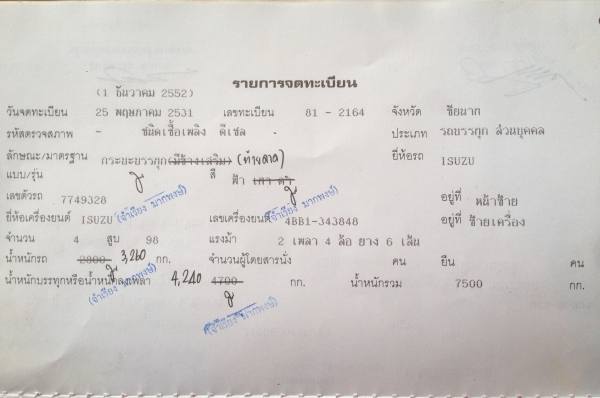 รายการจดทะเบียน
(1 ธันวาคม 2552)
วันจดทะเบียน 25 พฤษภาคม 2531 เลขทะเบียน 81 - 2164 จังหวัด ชัยนาท
รหัสตรวจสภาพ - ชนิดเชื้อเพลิง ดีเซล ประเภท รถบรรทุก ส่วนบุคคล
ลักษณะ/มาตรฐาน กระบะบรรทุก(มีข้างเสริม) (ท้ายลาด) ยี่ห้อรถ ISUZU
แบบ/รุ่น สี ฟ้า เทา ดำ
เลขตัวรถ 7749328 อยู่ที่ หน้าซ้าย
(จำเรียง มากพงษ์) (จำเรียง มากพงษ์)
ยี่ห้อเครื่องยนต์ ISUZU เลขเครื่องยนต์ 4BB1-343848 อยู่ที่ ซ้ายเครื่อง
จำนวน 4 สูบ 98 แรงม้า 2 เพลา 4 ล้อ ยาง 6 เส้น
น้ำหนักรถ 2800 3,260 กก. จำนวนผู้โดยสารนั่ง คน ยืน คน
น้ำหนักบรรทุกหรือน้ำหนักลงเพลา 4,240 4700 กก. น้ำหนักรวม 7500 กก.
(จำเรียง มากพงษ์)
(จำเรียง มากพงษ์)